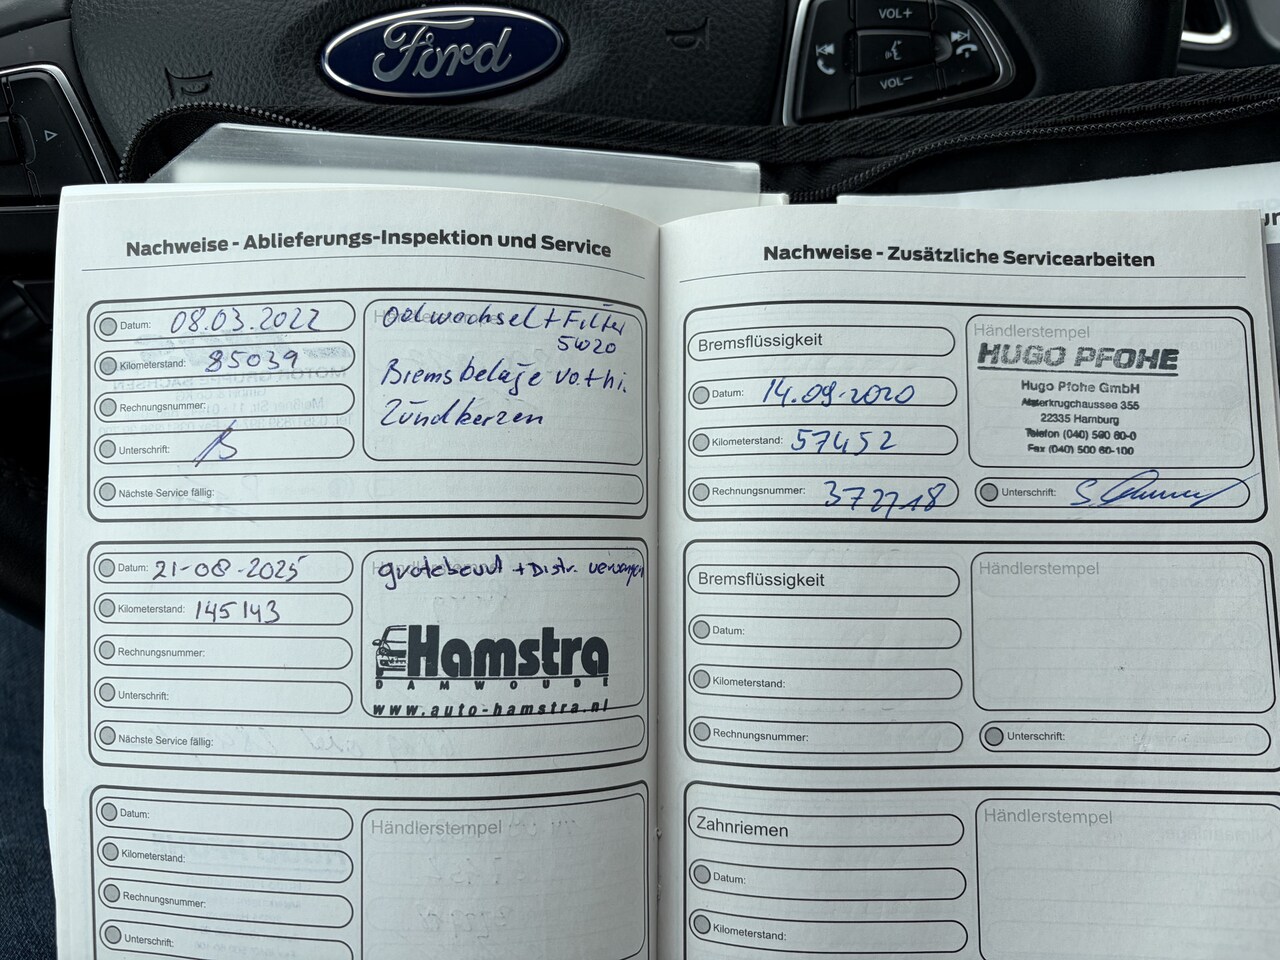 Ford
VOL+
VOL-
Nachweise - Ablieferungs-Inspektion und Service
Datum: 08.03.2022
Kilometerstand: 85039
Rechnungsnummer:
Unterschrift:
Nächste Service fällig:
Oelwechsel + Filter
5W20
Bremsbeläge vo+hi.
Zündkerzen
Datum: 21-08-2025
Kilometerstand: 145143
Rechnungsnummer:
Unterschrift:
Nächste Service fällig:
grotebeurt + Distr. vervangen
Hamstra
DAMWOUDE
www.auto-hamstra.nl
Datum:
Kilometerstand:
Rechnungsnummer:
Unterschrift:
Händlerstempel
Nachweise - Zusätzliche Servicearbeiten
Bremsflüssigkeit
Datum: 14.09.2020
Kilometerstand: 57452
Rechnungsnummer: 372718
Händlerstempel
HUGO PFOHE
Hugo Pfohe GmbH
Alsterkrugchaussee 355
22335 Hamburg
Telefon (040) 500 60-0
Fax (040) 500 60-100
Unterschrift:
Bremsflüssigkeit
Datum:
Kilometerstand:
Rechnungsnummer:
Händlerstempel
Unterschrift:
Zahnriemen
Datum:
Kilometerstand:
Händlerstempel